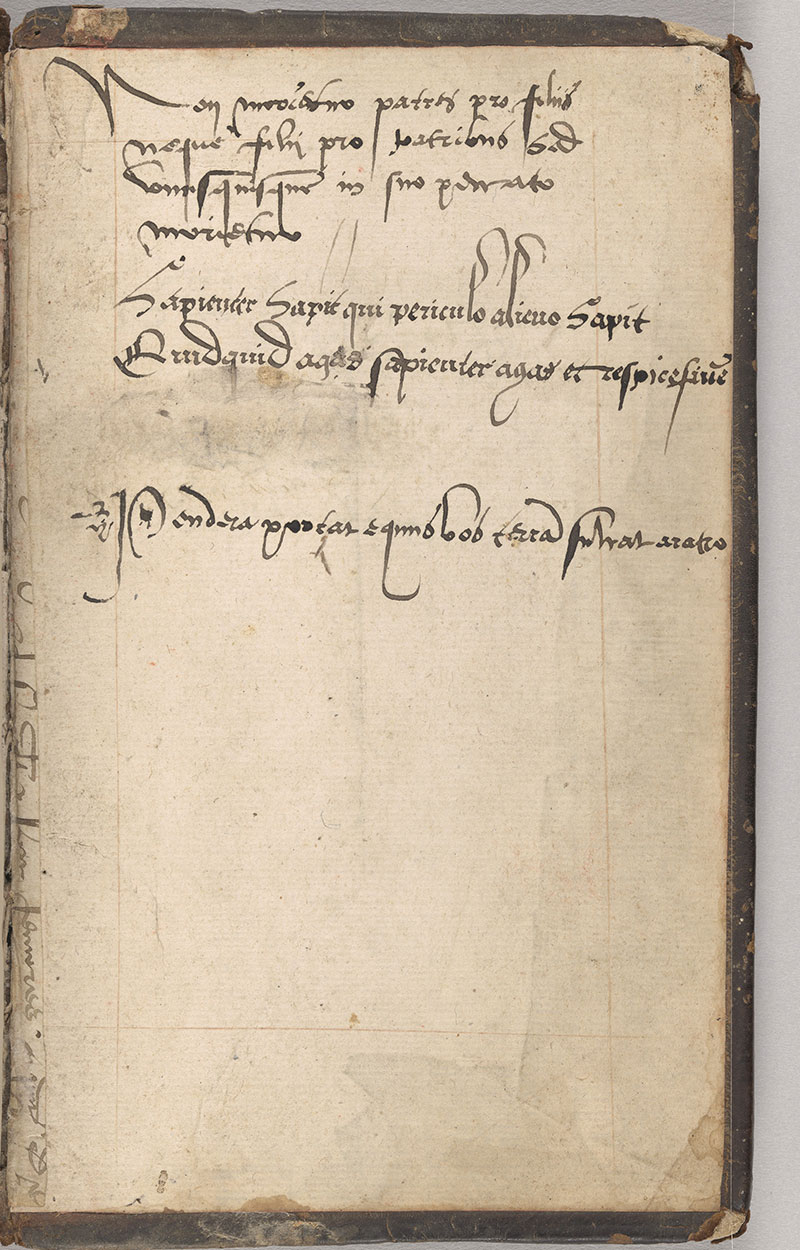 Non morietur patres pro filiis
neque filij pro patribus Sed
vnusquisque in suo peccato
morietur //
Sapienter Sapit qui periculo alieno Sapit
Quidquid agas sapienter agas et respice finē
Pondera portat equus bos terrā sulcat aratro